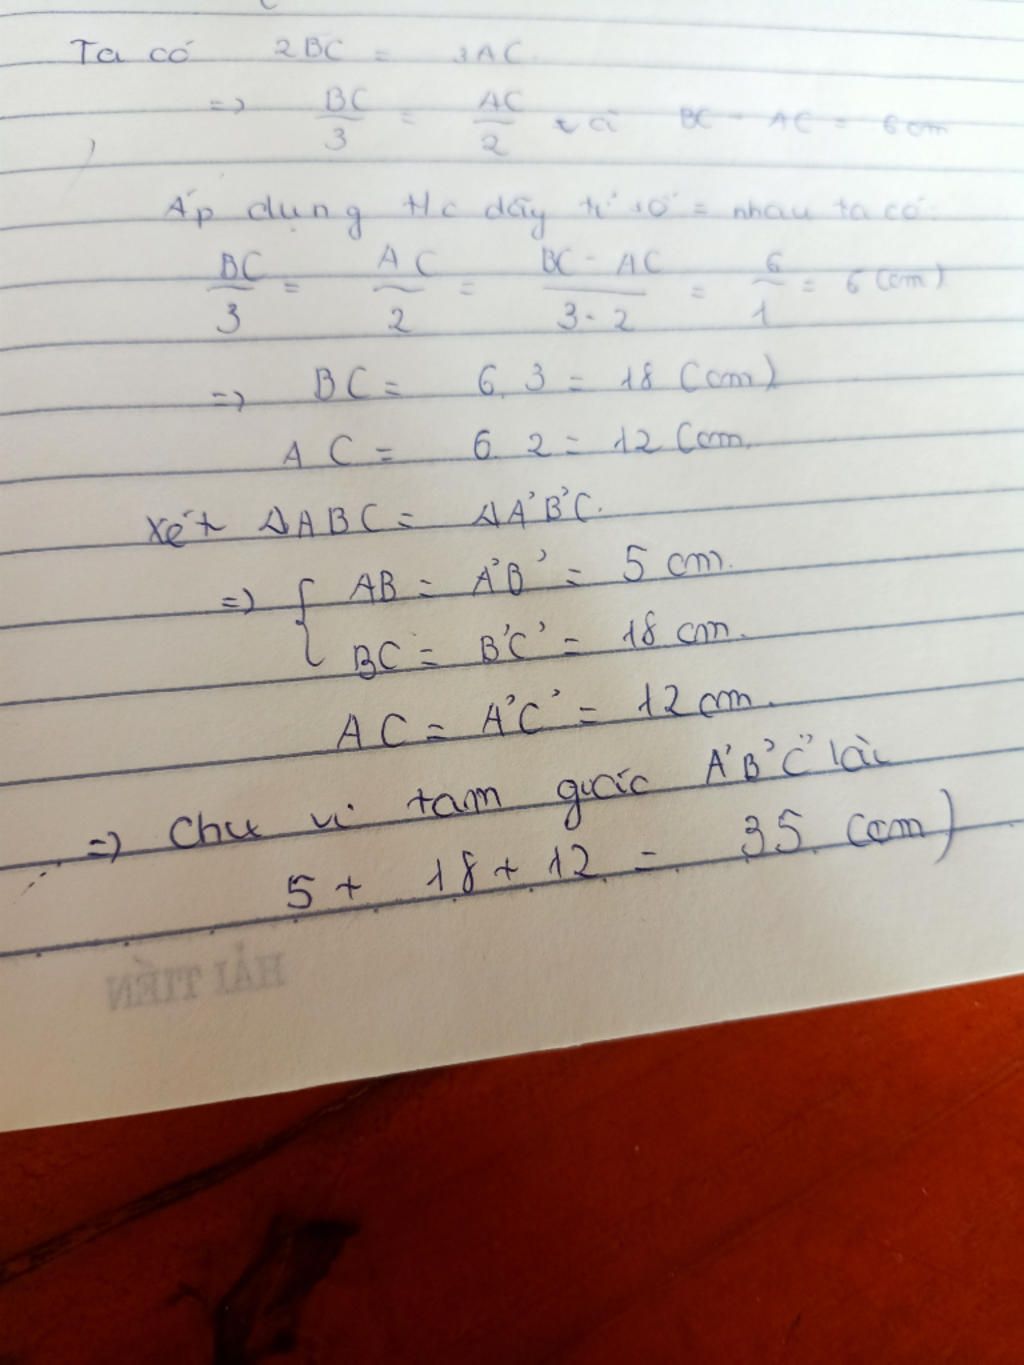 Ta có 2BC = 3AC
=> BC/3 = AC/2 và BC - AC = 6cm
Áp dụng t/c dãy tỉ số = nhau ta có:
BC/3 = AC/2 = BC - AC/3 - 2 = 6/1 = 6 (cm)
=> BC = 6.3 = 18 (cm)
AC = 6.2 = 12 (cm.
Xét ΔABC = ΔA'B'C.
=> { AB = A'B' = 5 cm.
BC = B'C' = 18 cm.
AC = A'C' = 12 cm.
=> Chu vi tam giác A'B'C' là
5 + 18 + 12 = 35 (cm)
HẢI TIẾN